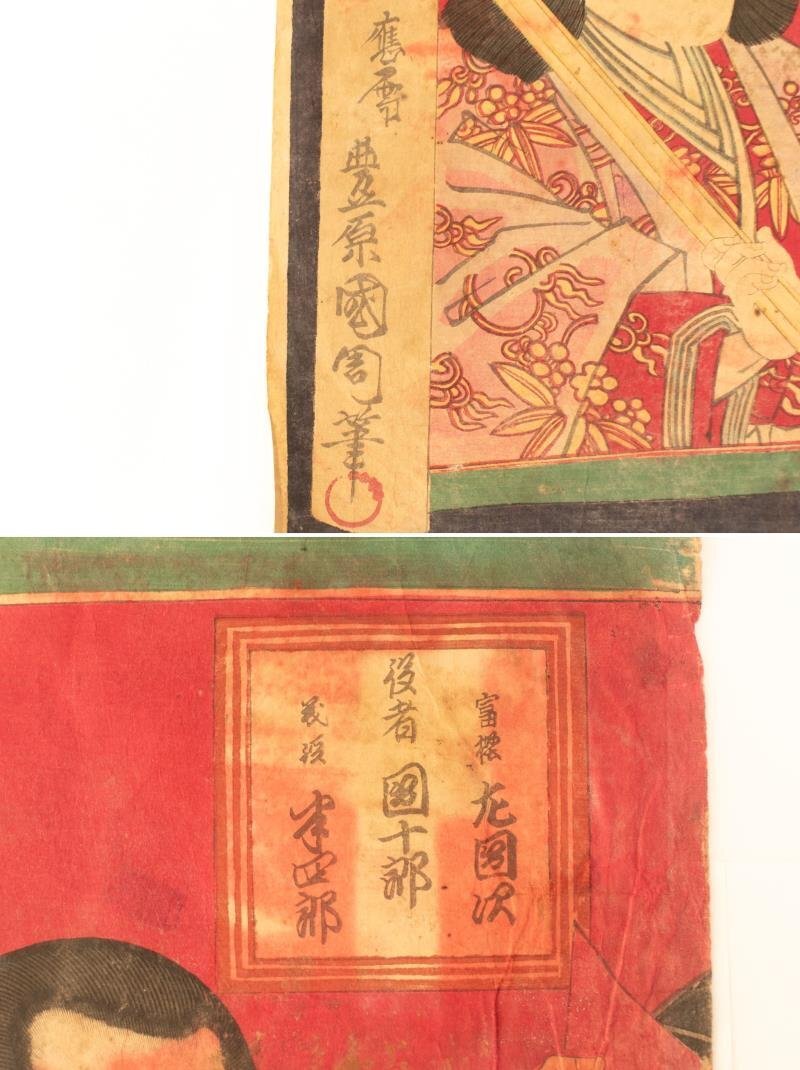 應需
豊原國周筆
左團次
役者
團十郎
半四郎